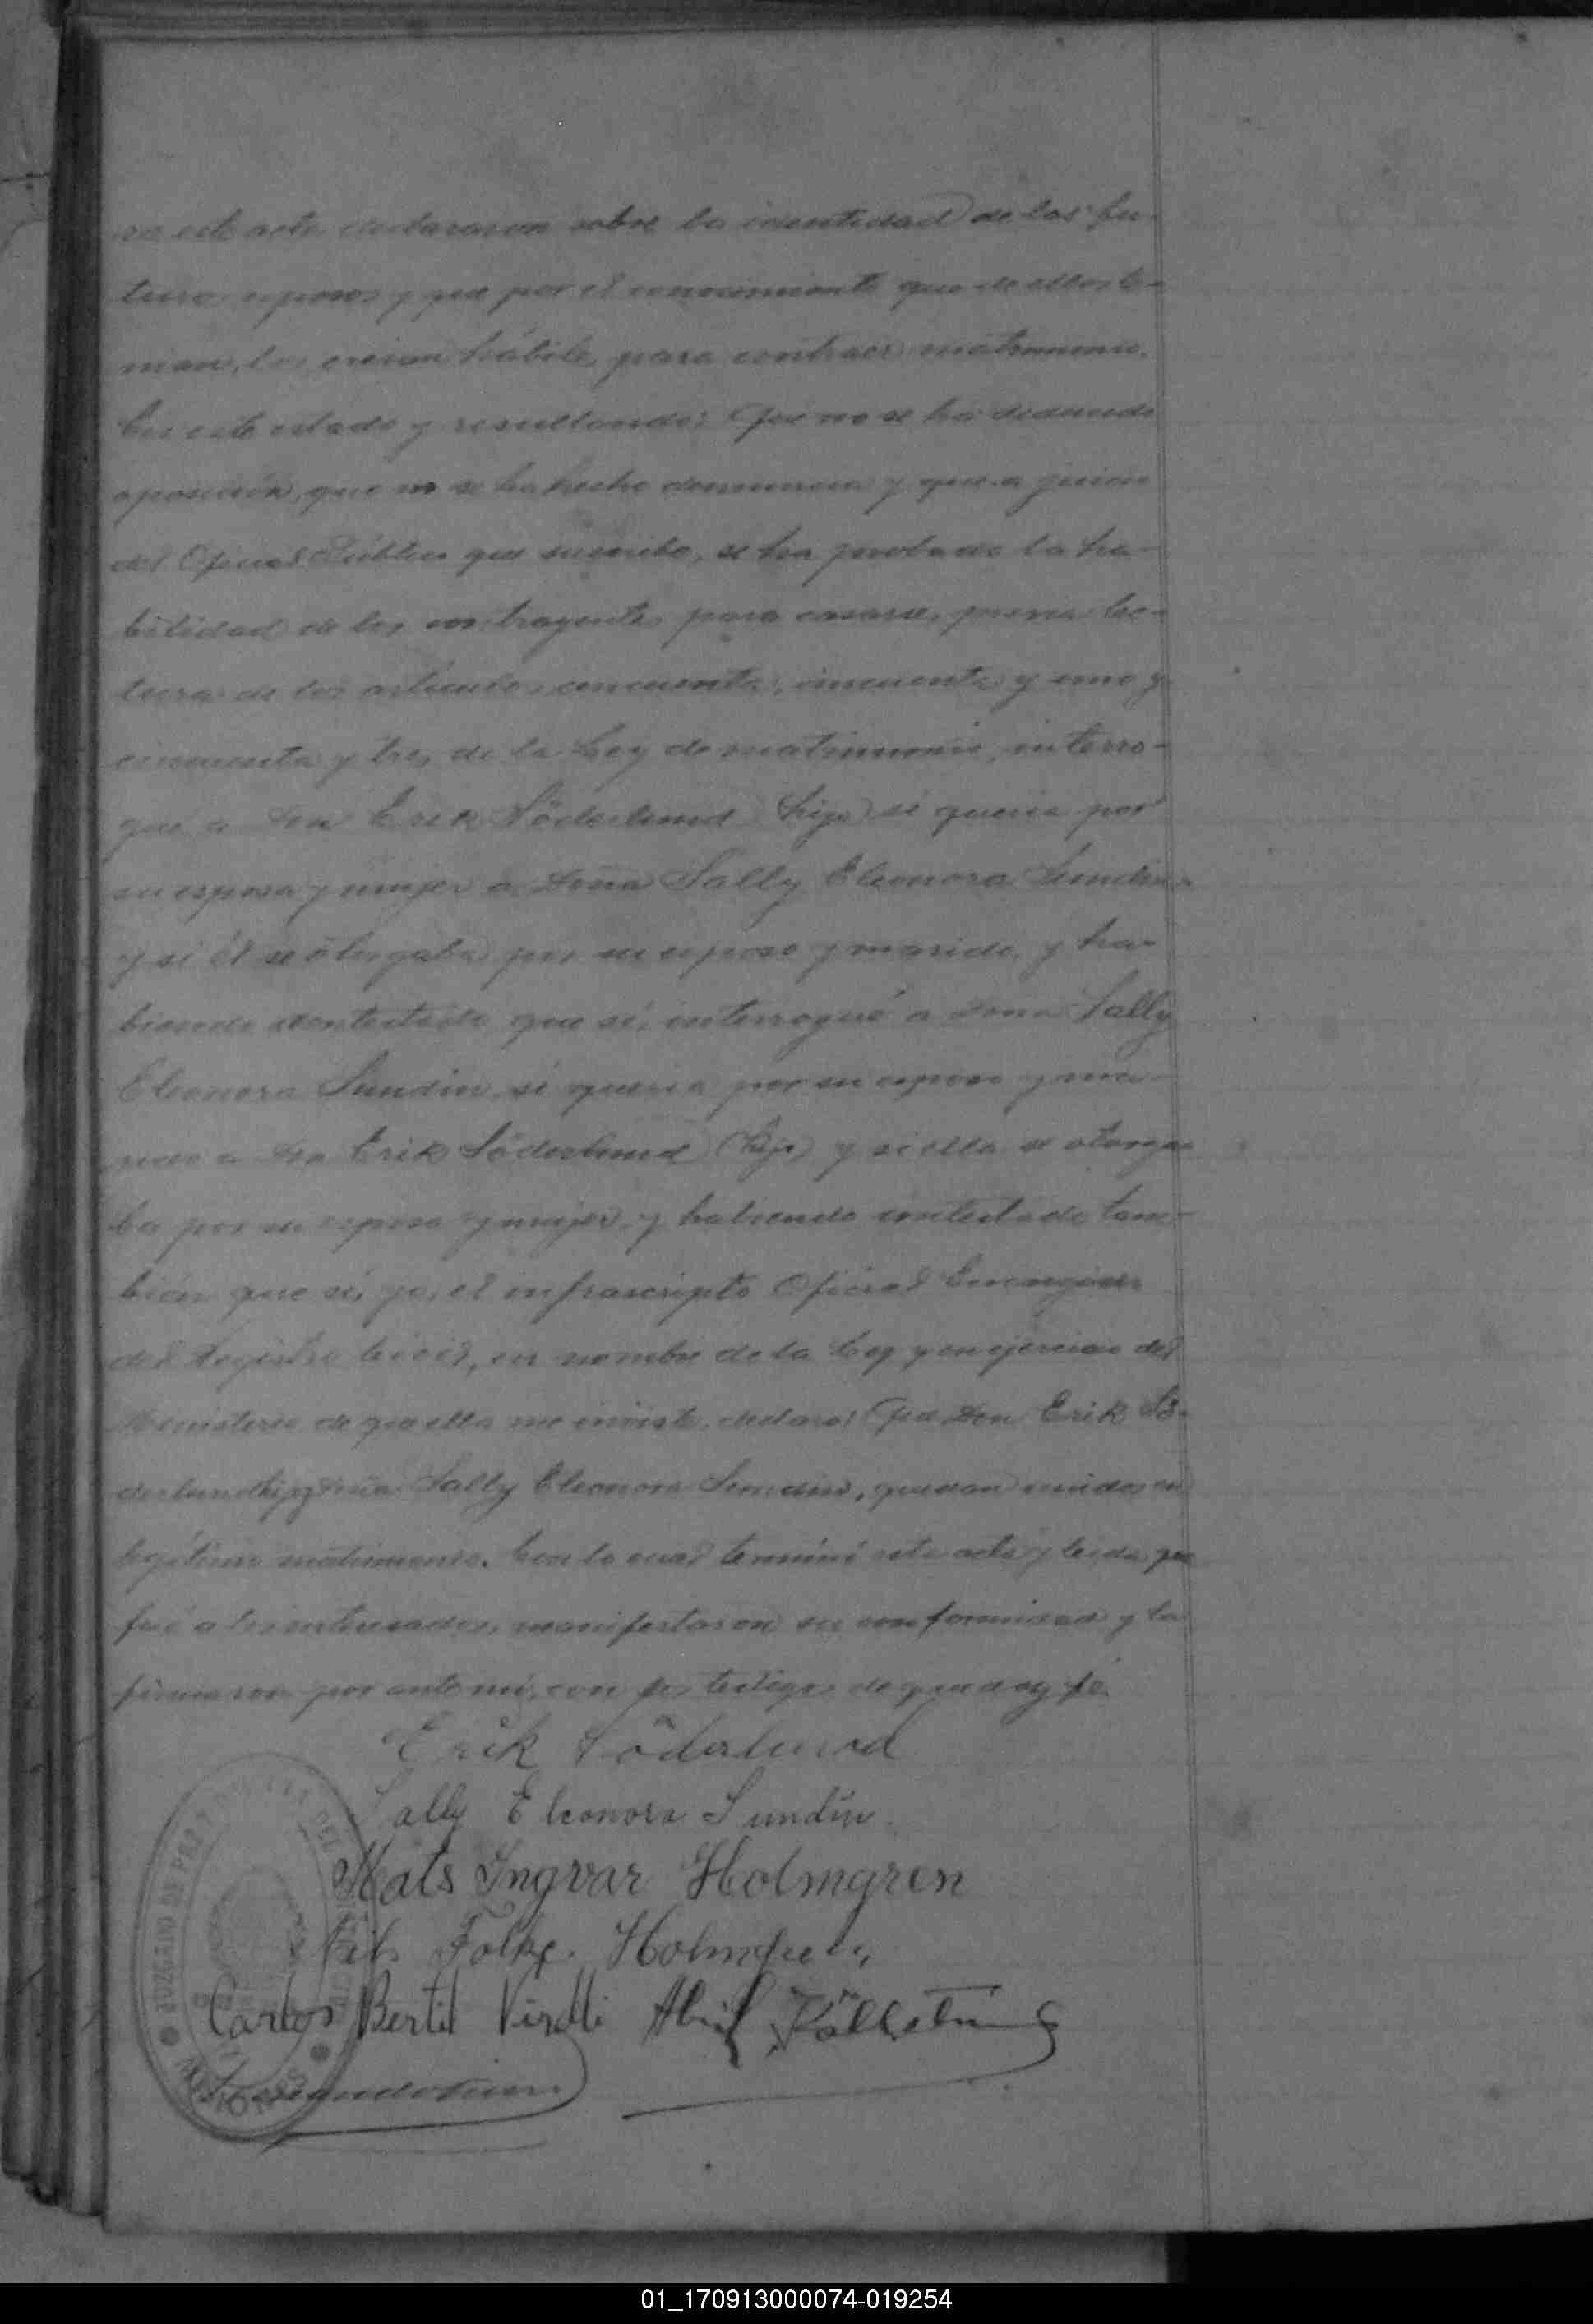 ra este acto declararon sobre la identidad de los fu-
turos esposos y que por el conocimiento que de ellos te-
nian, los creian hábiles para contraer matrimonio.
En este estado y resultando: Que no se ha deducido
oposición, que no se ha hecho denuncia y que a juicio
del Oficial Público que suscribe, se ha probado la ha-
bilidad de los contrayentes para casarse, previa lec-
tura de los artículos cincuenta, cincuenta y uno y
cincuenta y tres de la Ley de matrimonio, interro-
gué a Don Erik Söderlund (hijo) si queria por
su esposa y mujer a Doña Sally Eleonora Sundin
y si él se otorgaba por su esposo y marido, y ha-
biendo contestado que sí, interrogué a Doña Sally
Eleonora Sundin, si queria por su esposo y ma-
rido a Don Erik Söderlund (hijo) y si ella se otorga-
ba por su esposa y mujer, y habiendo contestado tam-
bién que sí, yo, el infrascripto Oficial Encargado
del Registro Civil, en nombre de la Ley y en ejercicio del
Ministerio de que ella me inviste, declaro: Que Don Erik Sö-
derlund (hijo) y Doña Sally Eleonora Sundin, quedan unidos en
legítimo matrimonio. Con lo cual terminó este acta y leida que
fué a los interesados, manifestaron su conformidad y la
firmaron por ante mí, con los testigos de que doy fé.
Erik Söderlund
Sally Eleonora Sundin
Mats Ingvar Holmgren
Nils Folke Holmgren
Carlos Bertil
JUZGADO DE PAZ
MISIONES
01_170913000074-019254